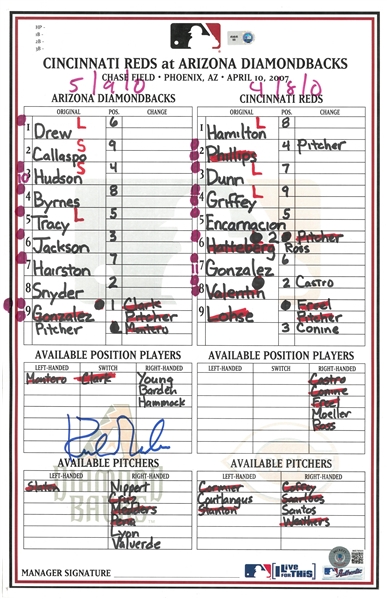 HP -
1B -
2B -
3B -
CINCINNATI REDS at ARIZONA DIAMONDBACKS
CHASE FIELD • PHOENIX, AZ • APRIL 10, 2007
5/9/0 4/8/0
ARIZONA DIAMONDBACKS CINCINNATI REDS
ORIGINAL POS CHANGE ORIGINAL POS CHANGE
1 Drew L 6 1 Hamilton L 8
2 Callaspo S 9 2 Phillips 4 Pitcher
3 Hudson S 4 3 Dunn L 7
4 Byrnes 8 4 Griffey L 9
5 Tracy L 5 5 Encarnacion 5
6 Jackson 3 6 Hatteberg 2 Pitcher Ross
7 Hairston 7 Gonzalez 6
8 Snyder 2 8 Valentin 2 Castro
9 Gonzalez 1 Clark Pitcher 9 Lohse Freel Pitcher
Pitcher Montero 3 Conine
AVAILABLE POSITION PLAYERS AVAILABLE POSITION PLAYERS
LEFT-HANDED SWITCH RIGHT-HANDED LEFT-HANDED SWITCH RIGHT-HANDED
Montero Clark Young Castro
Barden Conine
Hammock Freel
Moeller
Ross
AVAILABLE PITCHERS AVAILABLE PITCHERS
LEFT-HANDED RIGHT-HANDED LEFT-HANDED RIGHT-HANDED
Slaten Nippert Cormier Coffey
Cruz Coutlangus Saarloos
Medders Stanton Santos
Pena Weathers
Lyon
Valverde
MANAGER SIGNATURE
I Live for This!
Authentic